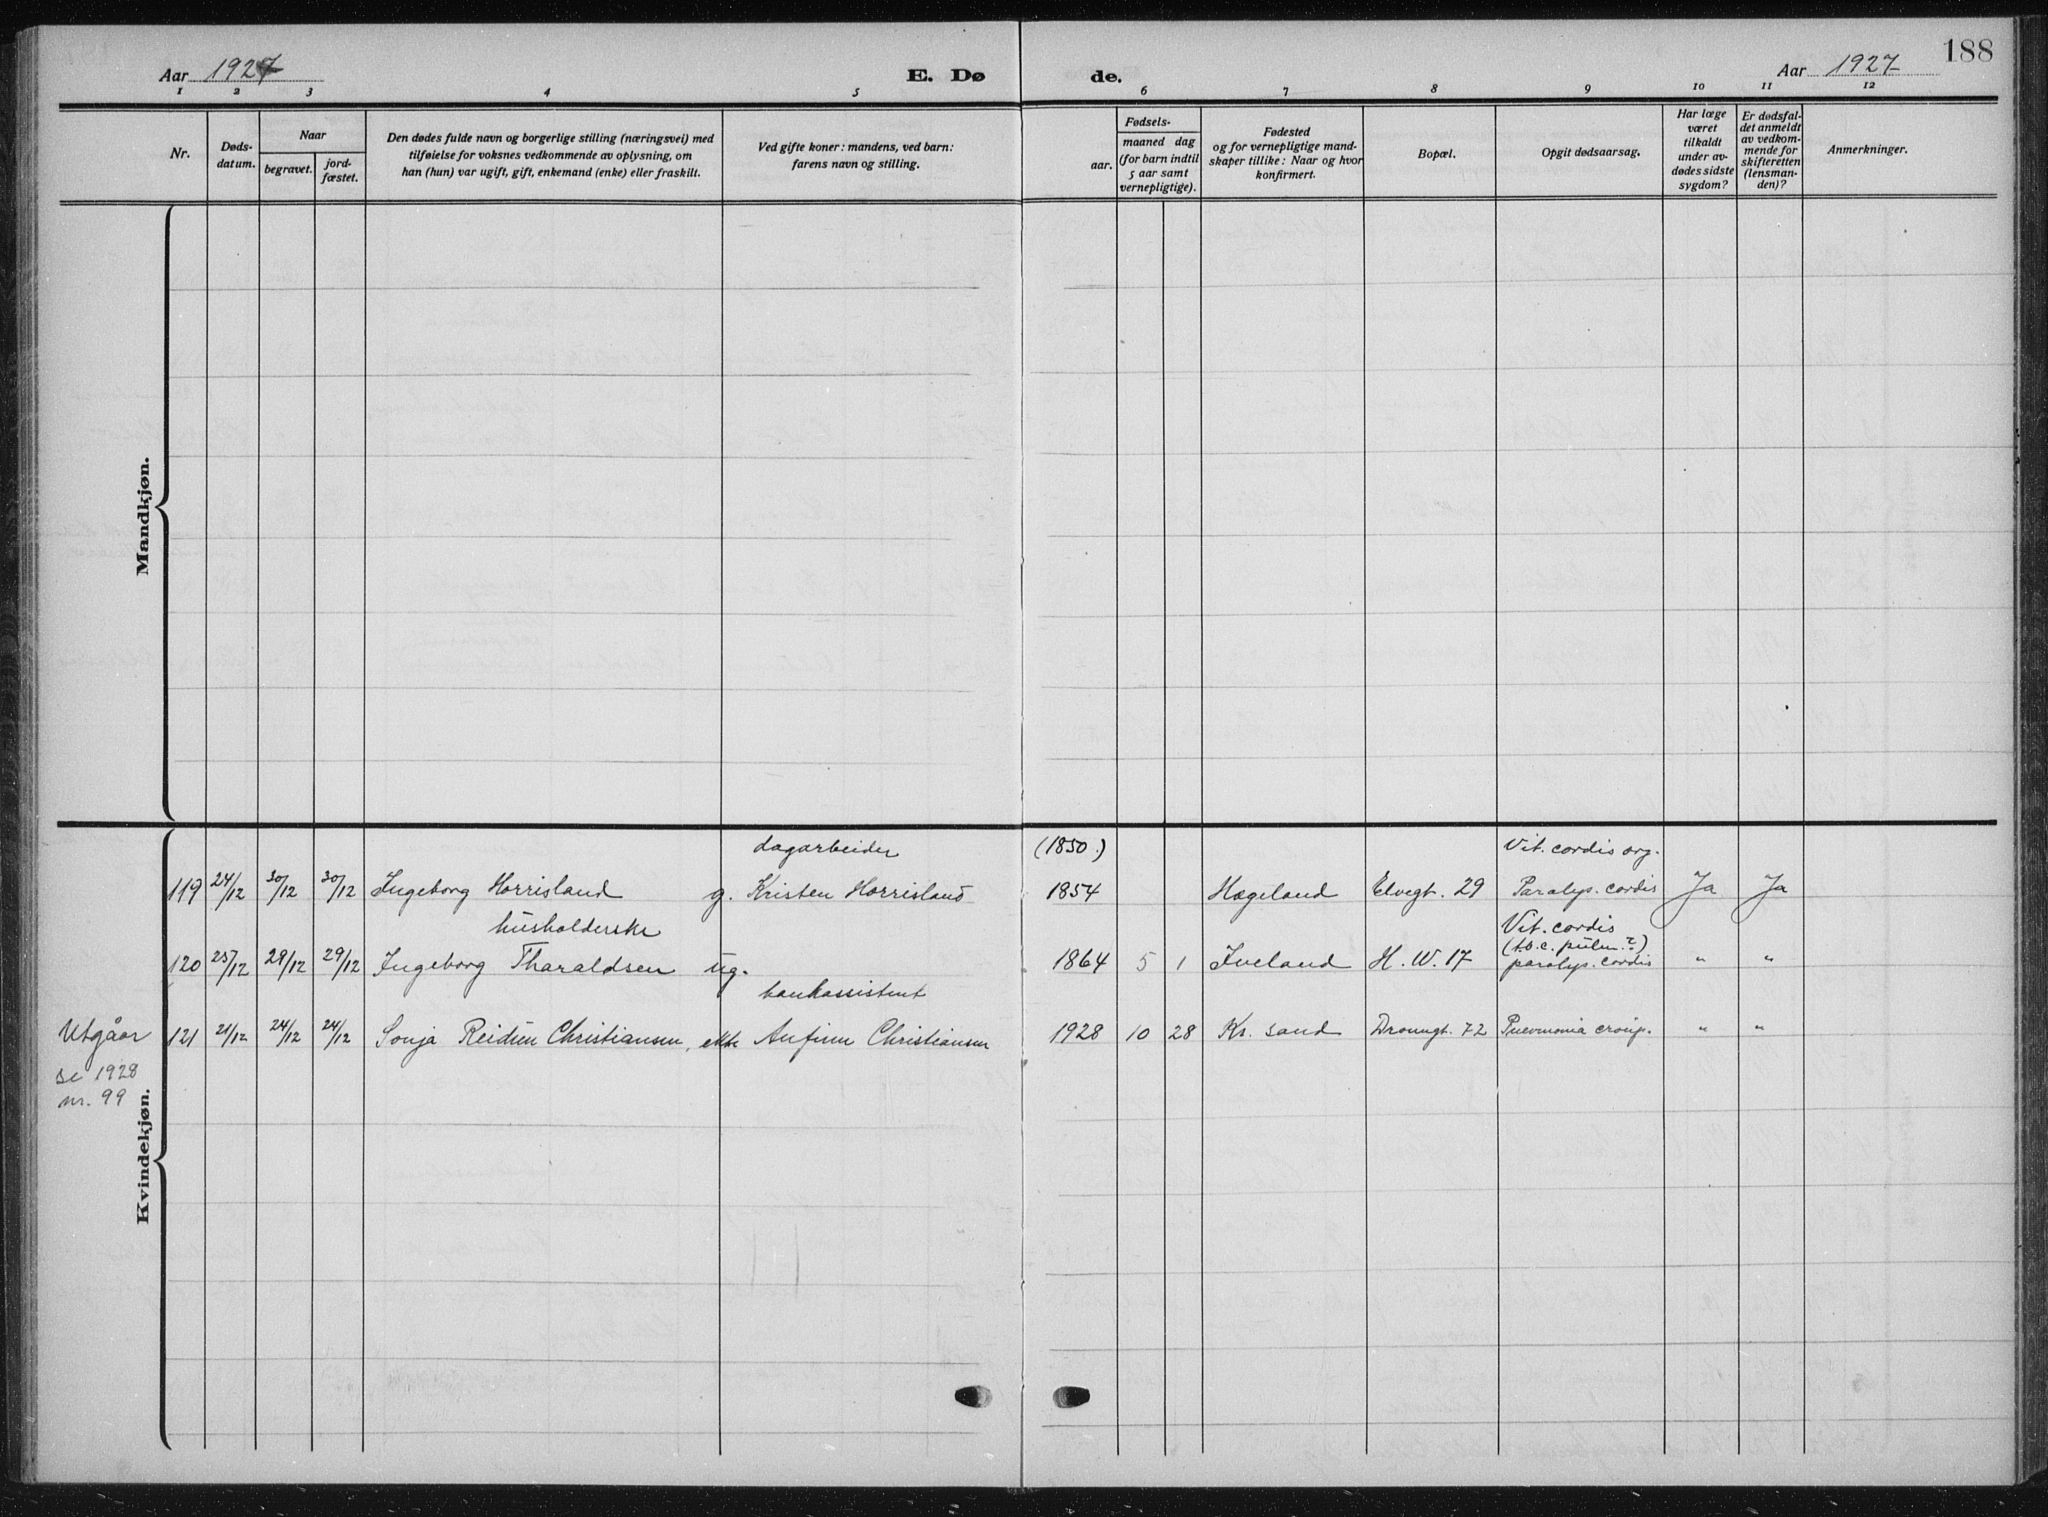 188
Aar 1927
E. Dø
de.
Aar 1927
1 2 3 4 5 6 7 8 9 10 11 12
Nr.
Døds-
datum.
Naar
begravet.
jord-
fæstet.
Den dødes fulde navn og borgerlige stilling (næringsvei) med
tilføielse for voksnes vedkommende av oplysning, om
han (hun) var ugift, gift, enkemand (enke) eller fraskilt.
Ved gifte koner: mandens, ved barn:
farens navn og stilling.
aar.
Fødsels-
maaned dag
(for barn indtil
5 aar samt
vernepligtige).
Fødested
og for vernepligtige mand-
skaper tillike: Naar og hvor
konfirmert.
Bopæl.
Opgit dødsaarsag.
Har læge
været
tilkaldt
under av-
dødes sidste
sygdom?
Er dødsfal-
det anmeldt
av vedkom-
mende for
skifteretten
(lensman-
den)?
Anmerkninger.
Mandkjøn.
Kvindekjøn.
dagarbeider (1850.) Vit. cordis org.
119 24/12 30/12 30/12 Ingeborg Horrisland g. Kristen Horrisland 1854 Hægeland Elvegt. 29 Paralys. cordis Ja Ja
husholderske Vit. cordis
(t.b.c. pulm.?)
120 25/12 28/12 29/12 Ingeborg Tharaldsen ug. 1864 5 1 Iveland H. W. 17 paralys. cordis " "
bankassistent
Utgåar 121 21/12 24/12 24/12 Sonja Reidun Christiansen, ekte Anfinn Christiansen 1928 10 28 Kr. sand Dronngt. 72 Pneumonia croup. " "
se 1928
nr. 99